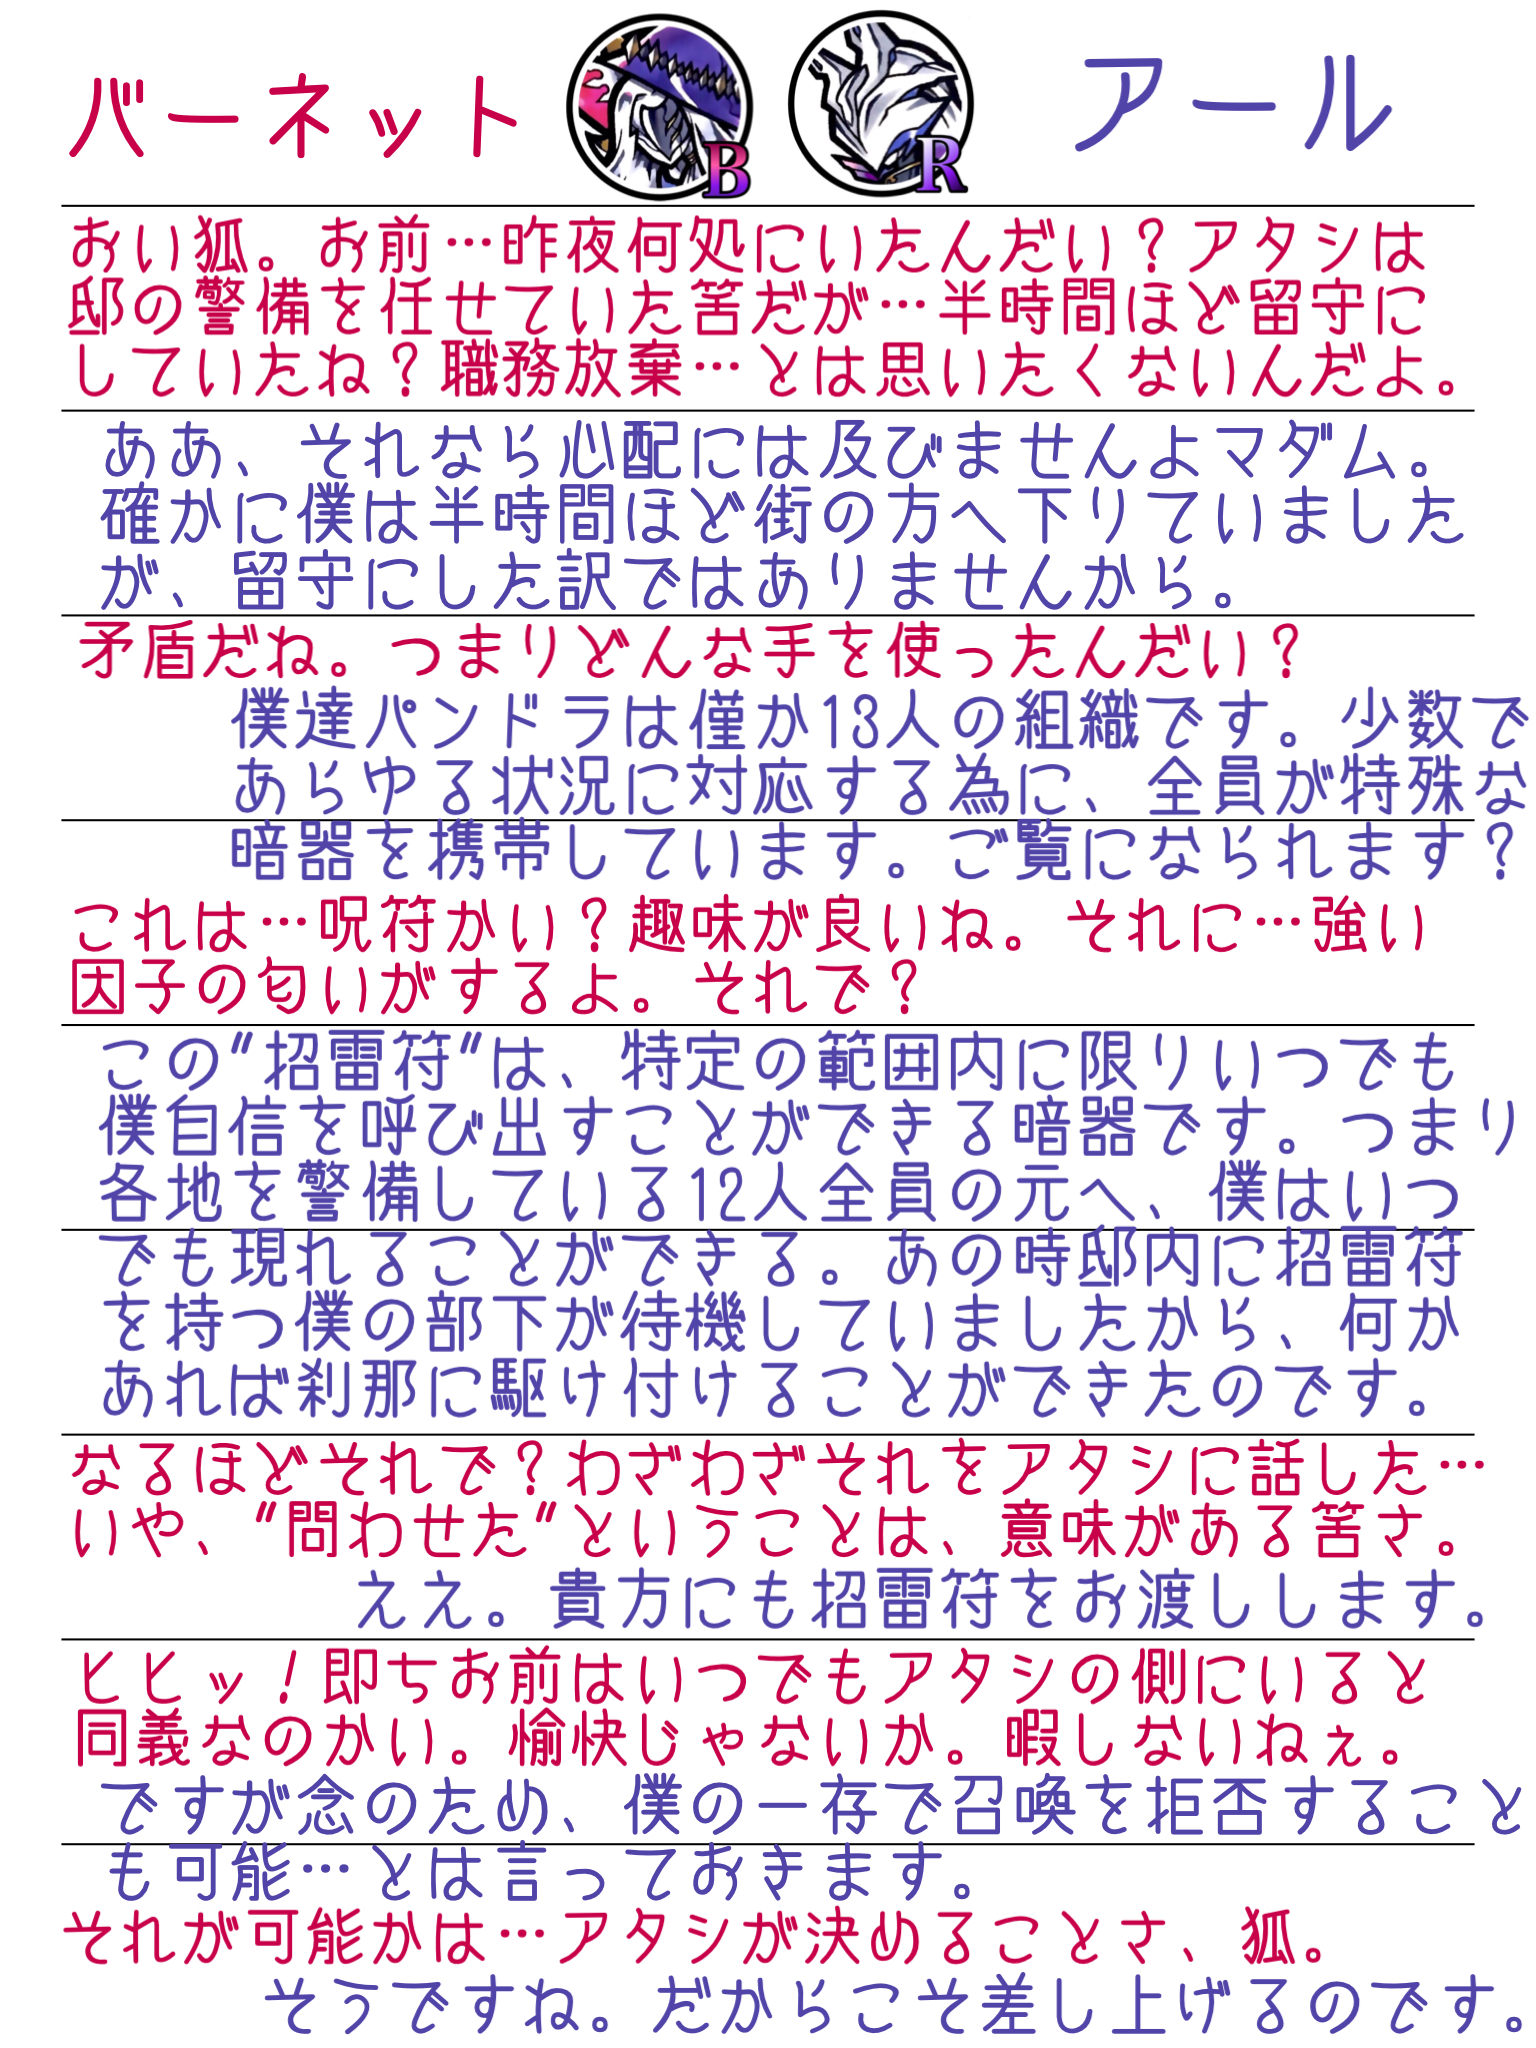 バーネット
B
R
アール
おい狐。お前…昨夜何処にいたんだい？アタシは
邸の警備を任せていた筈だが…半時間ほど留守に
していたね？職務放棄…とは思いたくないんだよ。
ああ、それなら心配には及びませんよマダム。
確かに僕は半時間ほど街の方へ下りていました
が、留守にした訳ではありませんから。
矛盾だね。つまりどんな手を使ったんだい？
僕達パンドラは僅か13人の組織です。少数で
あらゆる状況に対応する為に、全員が特殊な
暗器を携帯しています。ご覧になられます？
これは…呪符かい？趣味が良いね。それに…強い
因子の匂いがするよ。それで？
この"招雷符"は、特定の範囲内に限りいつでも
僕自信を呼び出すことができる暗器です。つまり
各地を警備している12人全員の元へ、僕はいつ
でも現れることができる。あの時邸内に招雷符
を持つ僕の部下が待機していましたから、何か
あれば刹那に駆け付けることができたのです。
なるほどそれで？わざわざそれをアタシに話した…
いや、"問わせた"ということは、意味がある筈さ。
ええ。貴方にも招雷符をお渡しします。
ヒヒッ！即ちお前はいつでもアタシの側にいると
同義なのかい。愉快じゃないか。暇しないねぇ。
ですが念のため、僕の一存で召喚を拒否すること
も可能…とは言っておきます。
それが可能かは…アタシが決めることさ、狐。
そうですね。だからこそ差し上げるのです。